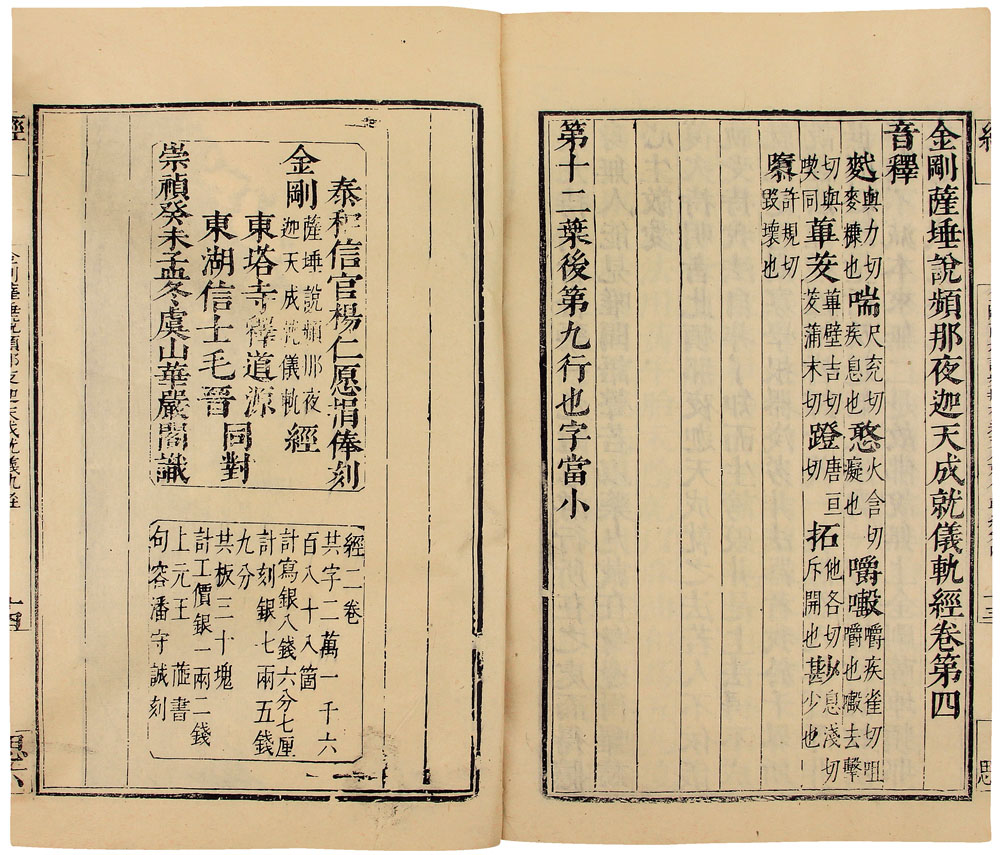 金剛薩埵說頻那夜迦天成就儀軌經卷第四
音釋
䴬與力切麥糠也喘尺兖切疾息也憨火含切癡也嚼嚼疾雀切咀嚼也去擊
切與喫同蓽茇蓽壁吉切茇蒲末切蹬唐亘切拓他各切斥開也尟息淺切甚少也
隳許規切毀壞也
第十二葉後第九行也字當小
思
泰和信官楊仁愿捐俸刻
金剛薩埵說頻那夜迦天成就儀軌經
東塔寺釋道源
東湖信士毛晉同對
崇禎癸未孟冬虞山華嚴閣識
經二卷
共字二萬一千六
百八十八箇
計寫銀八錢六分七厘
計刻銀七兩五錢
九分
共板三十塊
計工價銀一兩二錢
上元王菃書
句容潘守誠刻
經
十四
思六